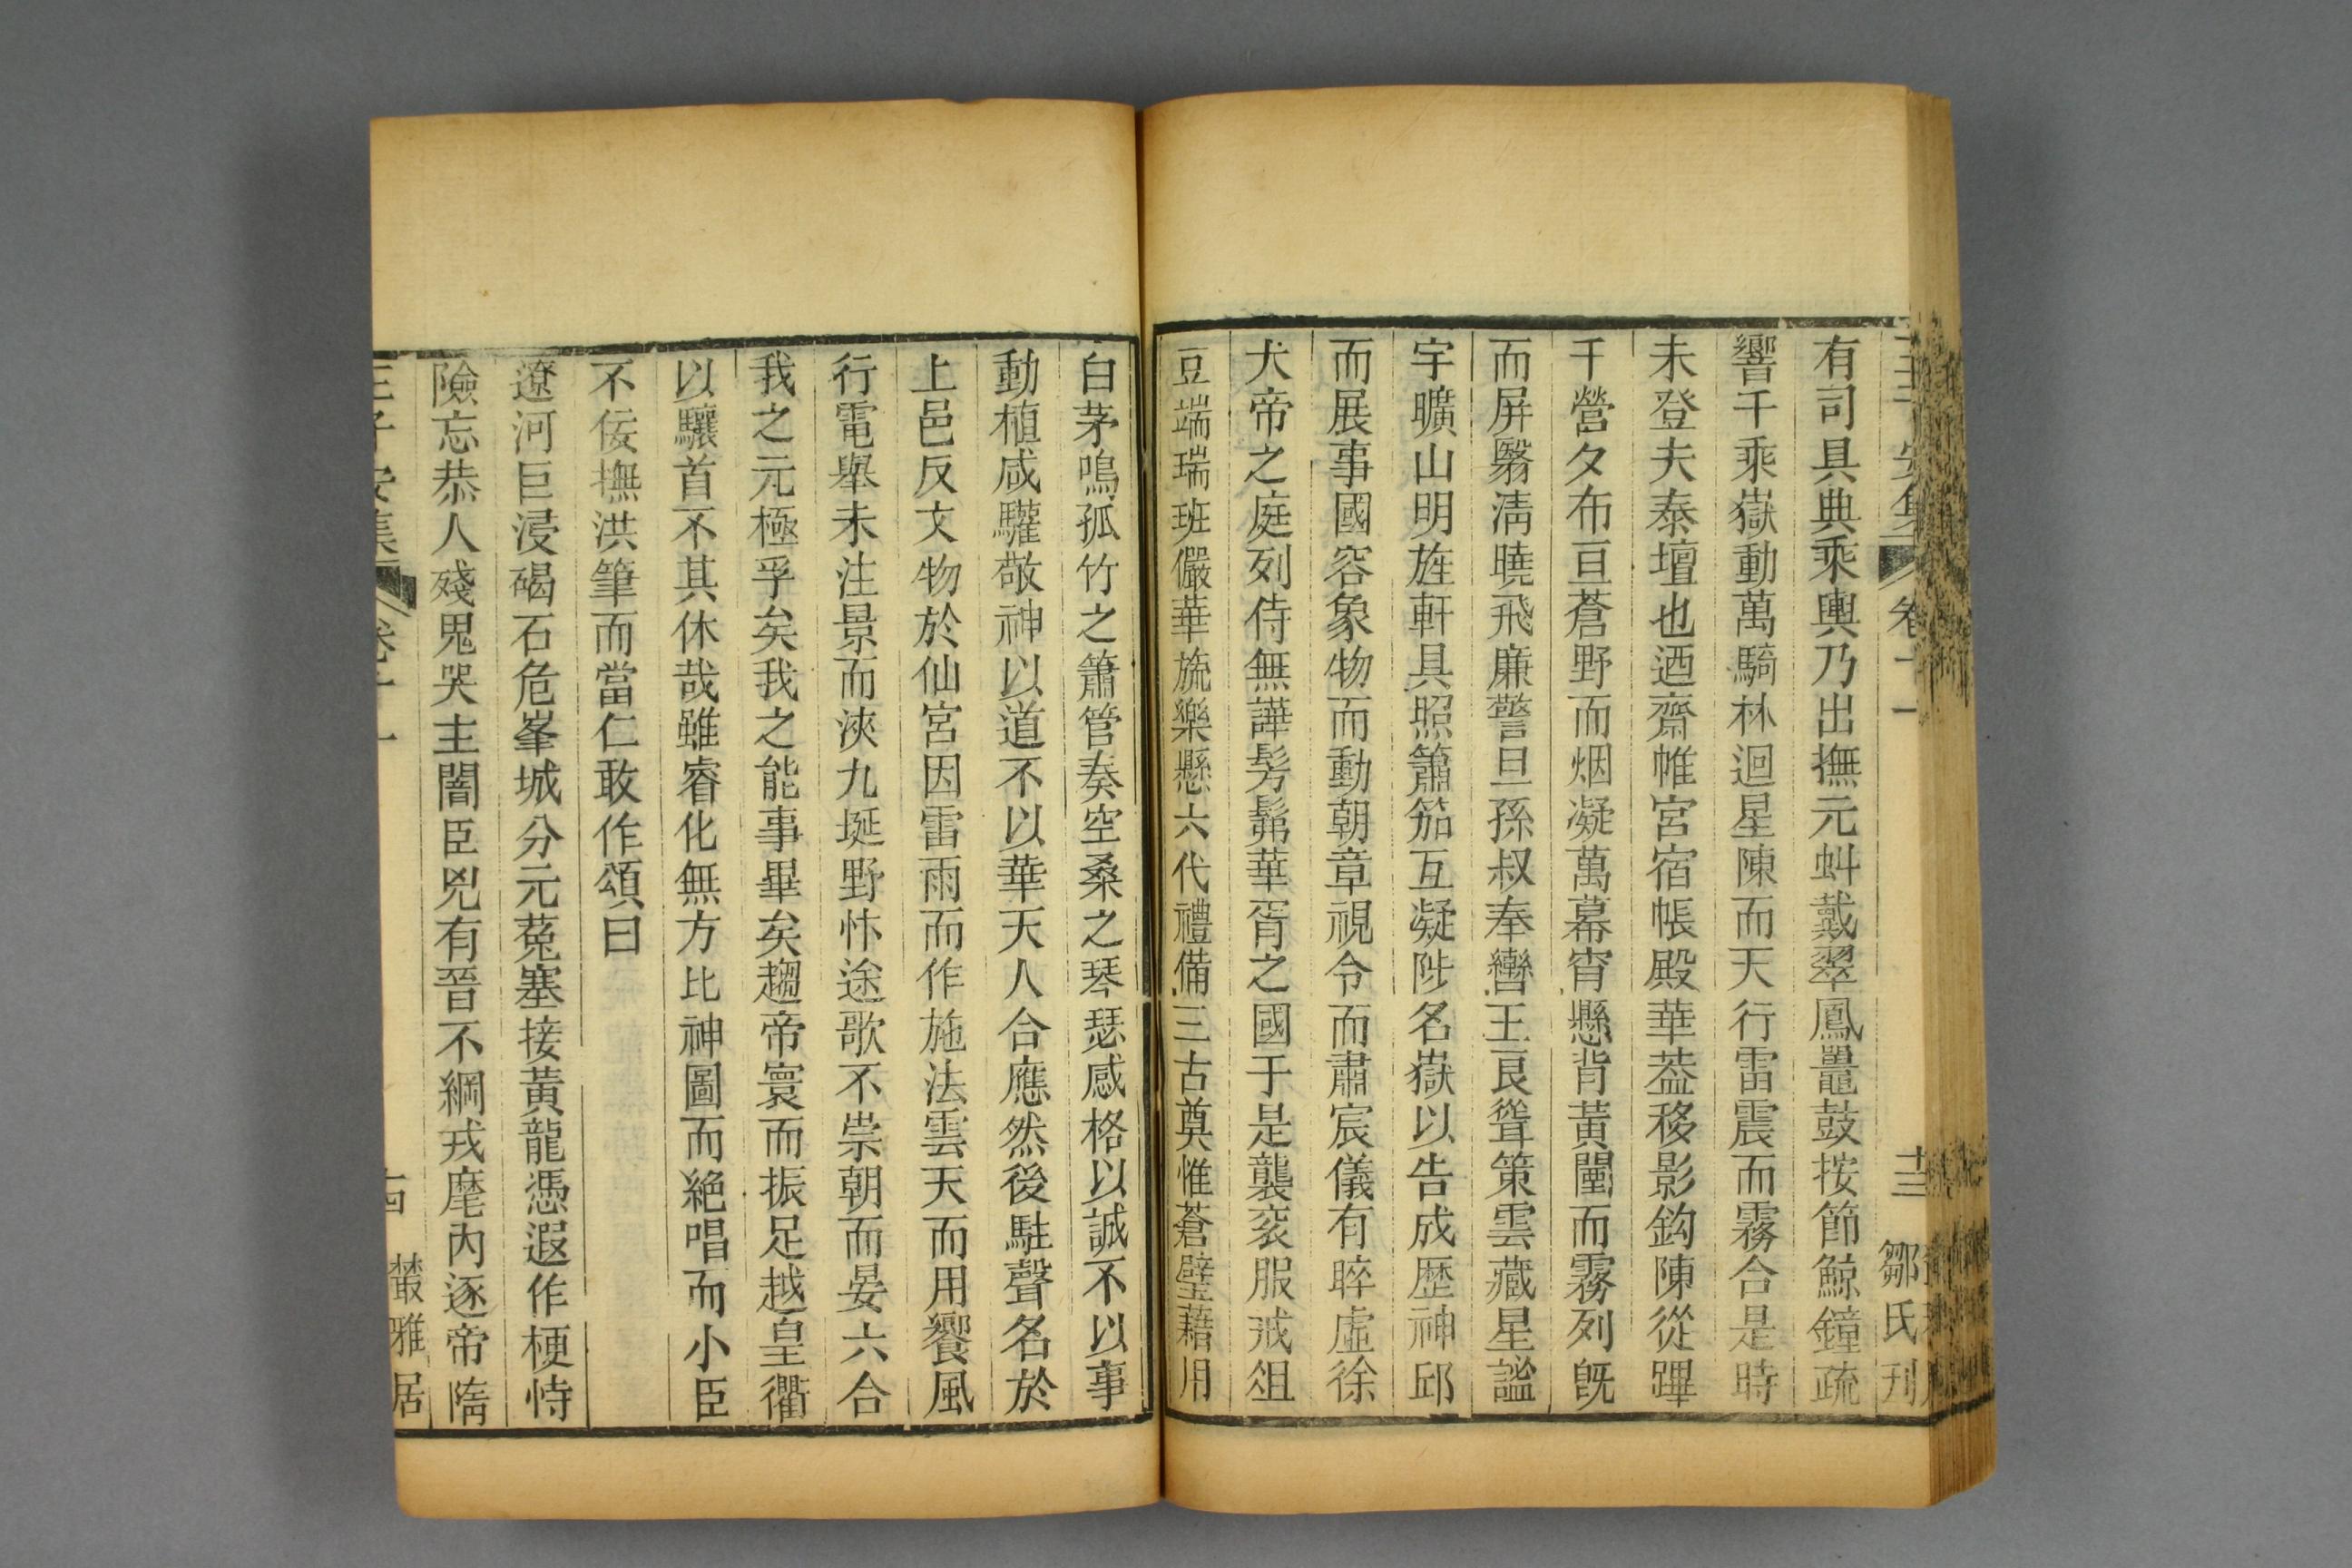 有司具典乘輿乃出撫元虯戴翠鳳鼉鼓按節鯨鐘疏
響千乘嶽動萬騎林迴星陳而天行雷震而霧合是時
未登夫泰壇也迺齋帷宮宿帳殿華葢移影鈎陳從蹕
千營夕布亘蒼野而烟凝萬幕宵懸背黃闉而霧列旣
而屏翳淸曉飛廉警旦孫叔奉轡王良聳策雲藏星謐
宇曠山明旌軒具照簫笳互凝陟名嶽以告成歷神邱
而展事國容象物而動朝章視令而肅宸儀有睟虛徐
大帝之庭列侍無譁髣髴華胥之國于是襲衮服戒俎
豆端瑞班儼華旒樂懸六代禮備三古奠惟蒼璧藉用
白茅鳴孤竹之簫管奏空桑之琴瑟感格以誠不以事
動植咸驩敬神以道不以華天人合應然後駐聲名於
上邑反文物於仙宮因雷雨而作施法雲天而用饗風
行電舉未注景而浹九埏野忭途歌不崇朝而晏六合
我之元極孚矣我之能事畢矣趨帝寰而振足越皇衢
以驤首不其休哉雖睿化無方比神圖而絶唱而小臣
不佞撫洪筆而當仁敢作頌曰
遼河巨浸碣石危峯城分元菟塞接黃龍憑遐作梗恃
險忘恭人殘鬼哭主闇臣兇有晉不綱戎麾內逐帝隋
王子安集 卷十一 十三 鄒氏刊
王子安集 卷十一 十四 叢雅居